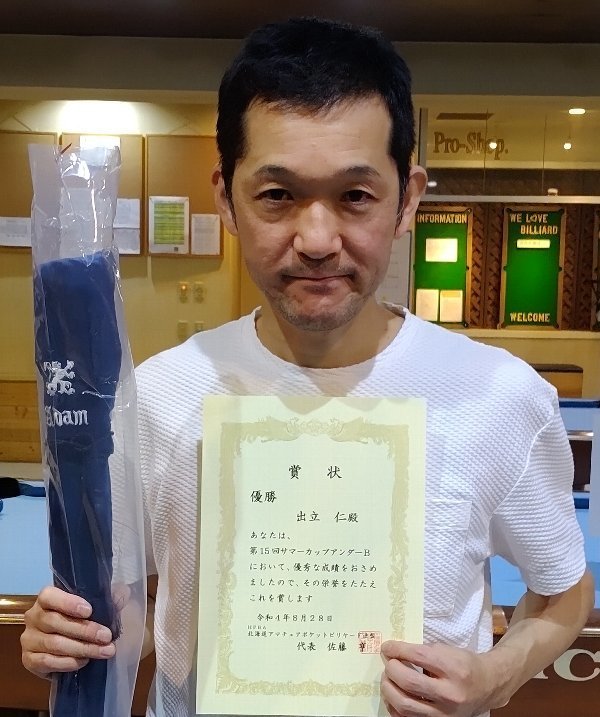 Pro-Shop.
INFORMATION
WE LOVE
BILLIARD
WELCOME
Adam
賞状
優勝
出立 仁殿
あなたは、
第15回サマーカップアンダーB
において、優秀な成績をおさめ
ましたので、その栄誉をたたえ
これを賞します
令和4年8月28日
HPBA
北海道アマチュアポケットビリヤード連盟
代表 佐藤 章